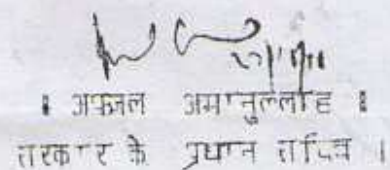 । अफजल अमानुल्लाह ।
सरकार के प्रधान सचिव ।